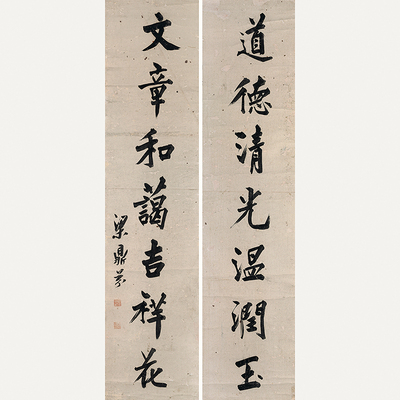 道德清光温潤玉
文章和藹吉祥花
梁鼎芬